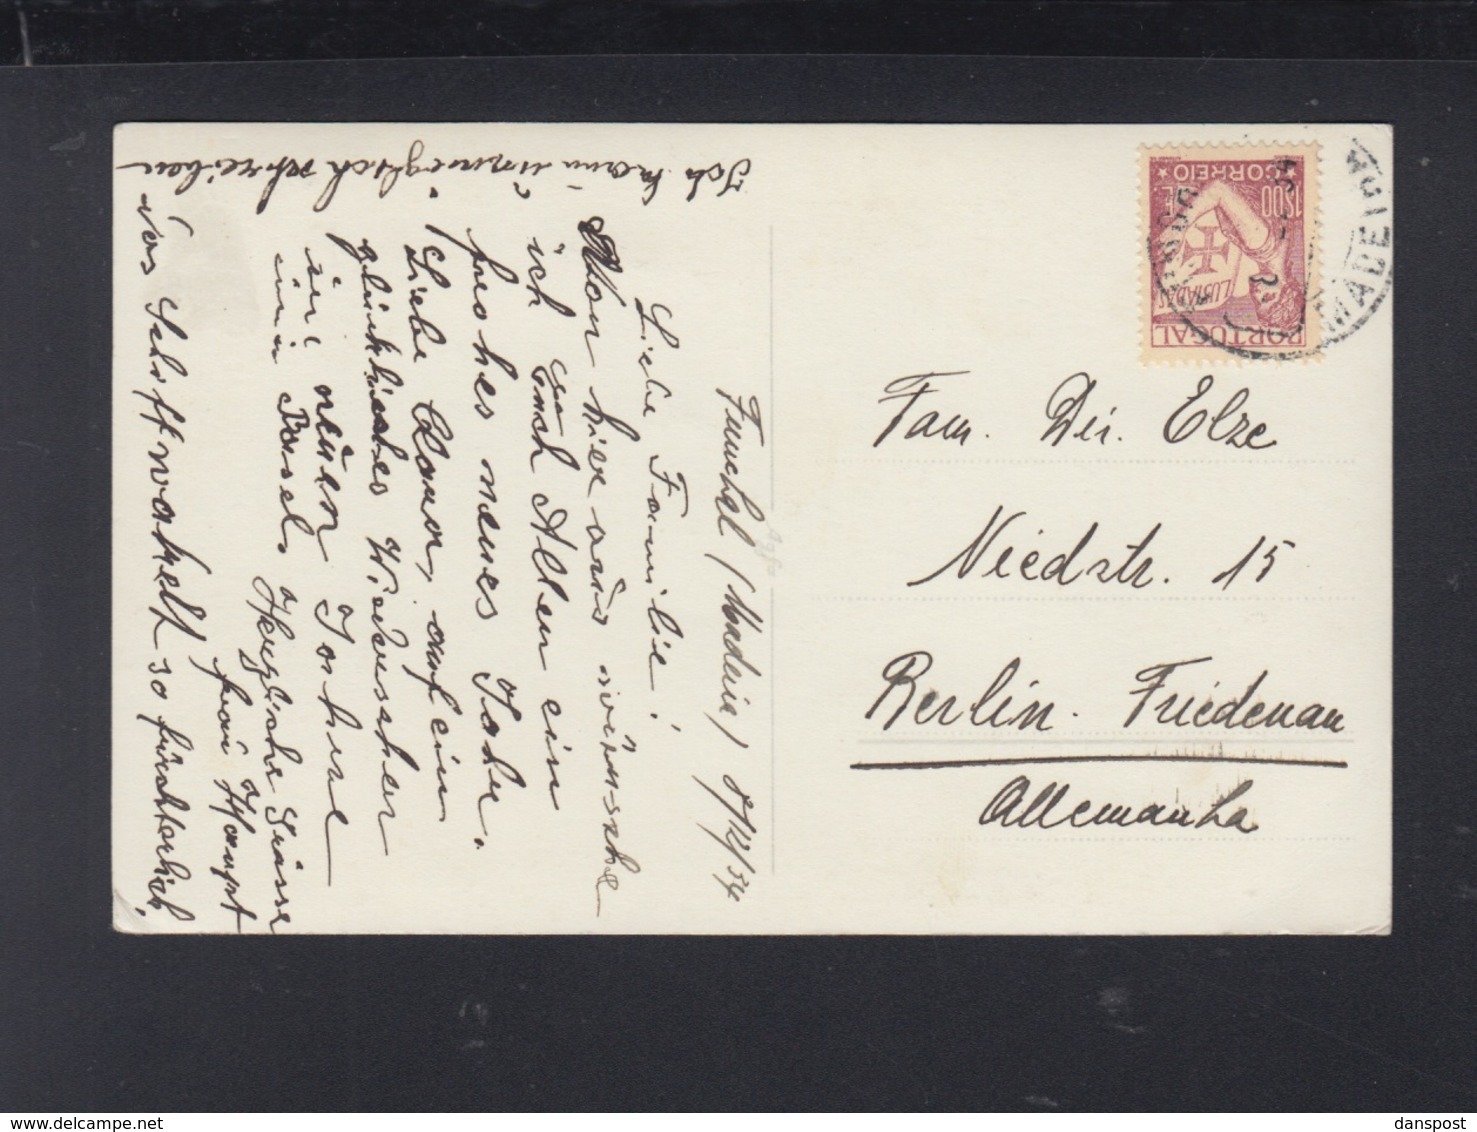 Funchel (Madeira) 8/12/34
Liebe Familie!
Von hier aus wünsche
ich Euch Allen ein
frohes neues Jahr.
Liebe Clara, auf ein
glückliches Wiedersehen
im neuen Jahre
in Basel. Herzliche Grüsse
Frau Haupt
Das Schiff wakelt so fürchterlich,
Ich kann unmöglich schreiben
Fam. Dir. Elze
Niedstr. 15
Berlin. Friedenau
Allemanha
1$00
CORREIO
LUSIADAS
PORTUGAL
MADEIRA
Agfa
danspost